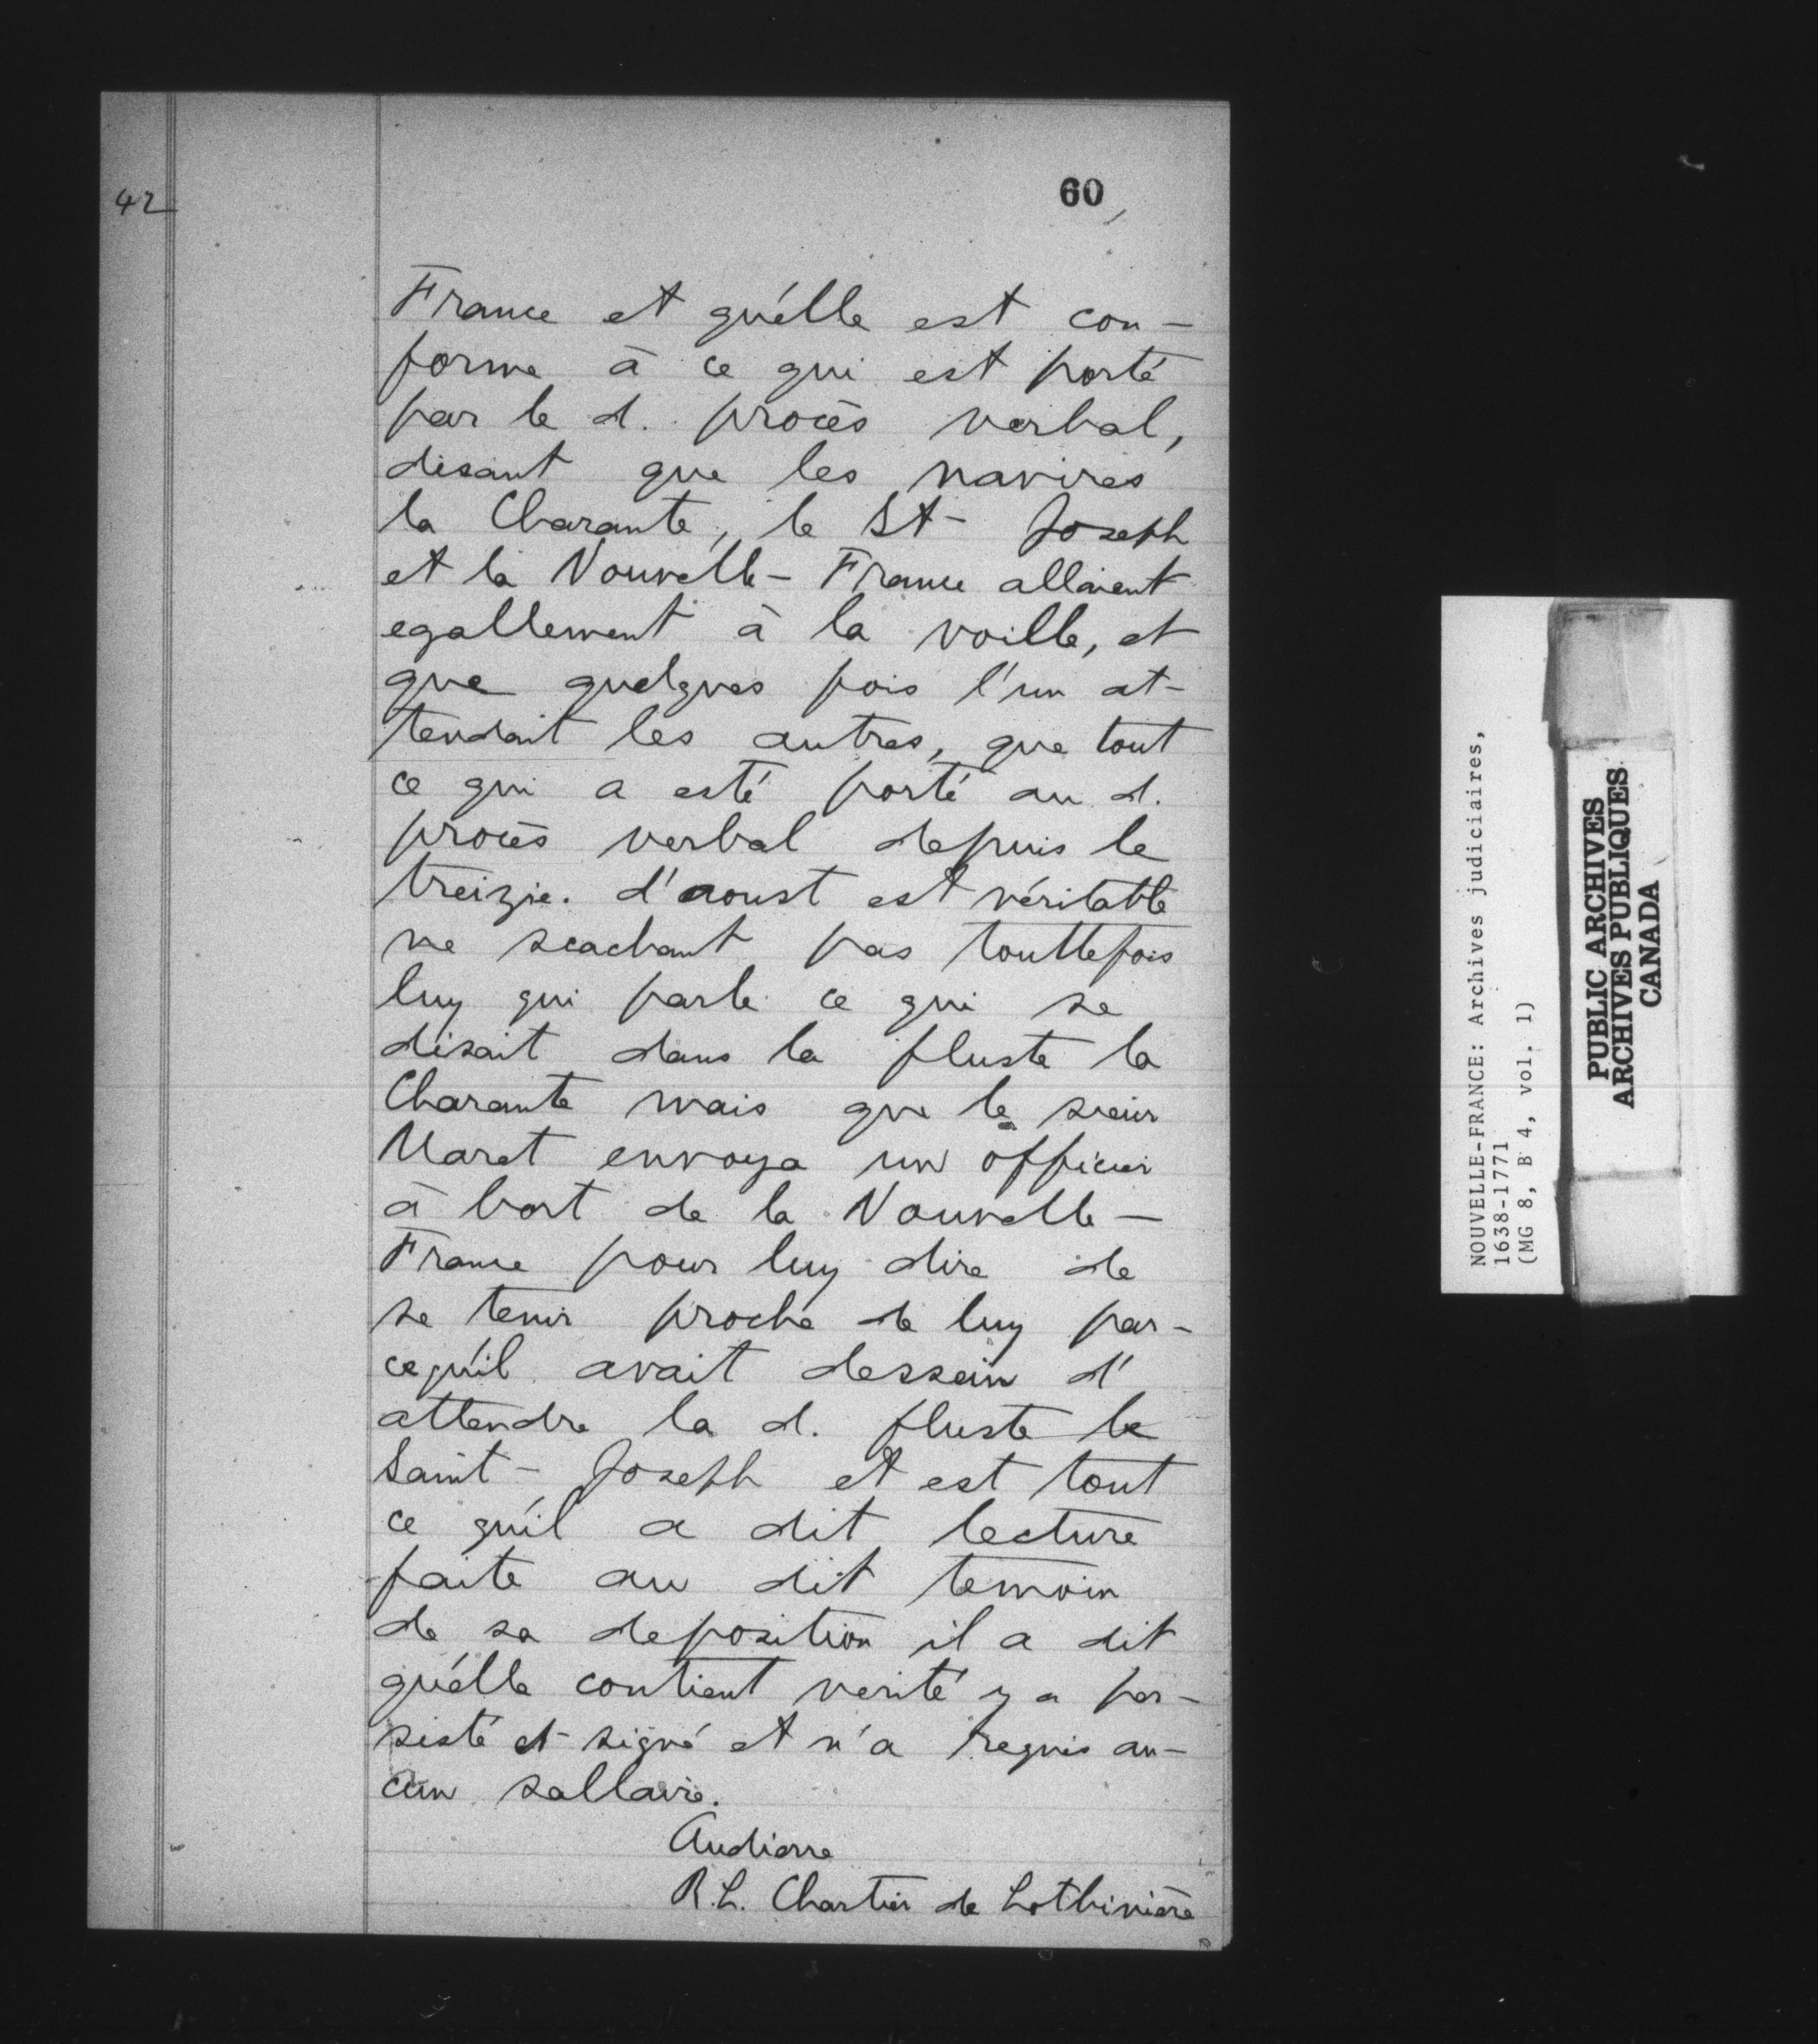 42
60
France et qu'elle est con-
forme à ce qui est porté
par le d. procès verbal,
disant que les navires
la Charante, le St- Joseph
et la Nouvelle- France allaient
egallement à la voille, et
que quelques fois l'un at-
tendait les autres, que tout
ce qui a esté porté au d.
procès verbal depuis le
treizie. d'aoust est véritable
ne scachant pas touttefois
luy qui parle ce qui se
disait dans la fluste la
Charante mais que le sieur
Maret envoya un officier
à bort de la Nouvelle-
France pour luy dire de
se tenir proche de luy par-
cequ'il avait dessein d'
attendre la d. fluste le
Saint- Joseph et est tout
ce qu'il a dit lecture
faite au dit temoin
de sa deposition il a dit
qu'elle contient verité y a per-
sisté et signé et n'a requis au-
cun sallaire.
Audierre
R.L. Chartier de Lotbinière
NOUVELLE-FRANCE: Archives judiciaires,
1638-1771
(MG 8, B 4, vol. 1)
PUBLIC ARCHIVES
ARCHIVES PUBLIQUES
CANADA